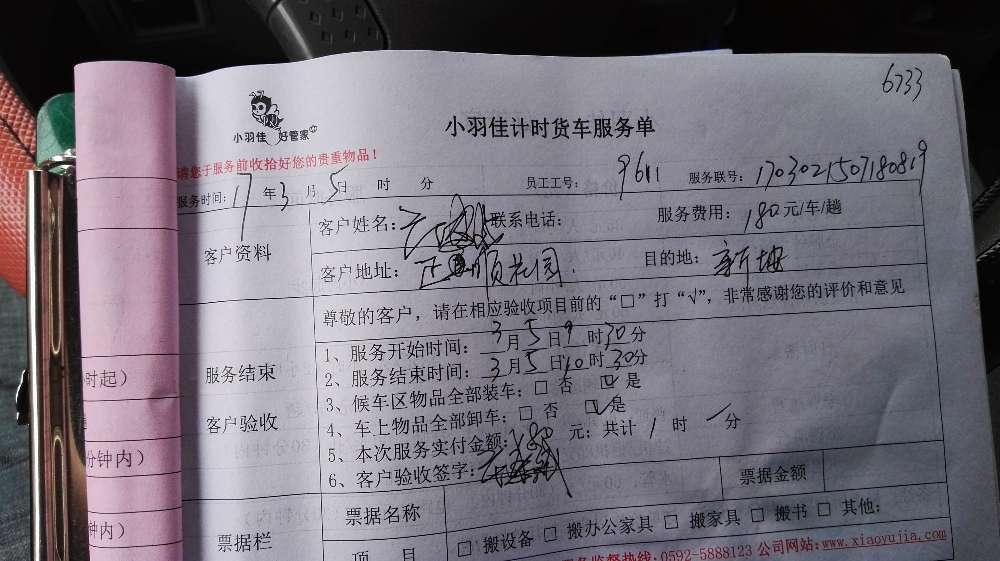 6733
小羽佳 好管家
小羽佳计时货车服务单
请您于服务前收拾好您的贵重物品！
服务时间：17年3月5日 时 分 员工工号：9611 服务联号：1703021507180819
客户资料
客户姓名： 联系电话： 服务费用：180元/车/趟
客户地址：正顺花园 目的地：新垵
尊敬的客户，请在相应验收项目前的“□”打“√”，非常感谢您的评价和意见
服务结束
客户验收
1、服务开始时间：3月5日9时30分
2、服务结束时间：3月5日10时30分
3、候车区物品全部装车：□ 否 ☑ 是
4、车上物品全部卸车：□ 否 ☑ 是
5、本次服务实付金额：180元；共计1时/分
6、客户验收签字：
时起）
分钟内）
钟内）
票据栏
票据名称
票据金额
项 目
□ 搬设备 □ 搬办公家具 □ 搬家具 □ 搬书 □ 其他：
服务监督热线：0592-5888123 公司网站：www.xiaoyujia.com